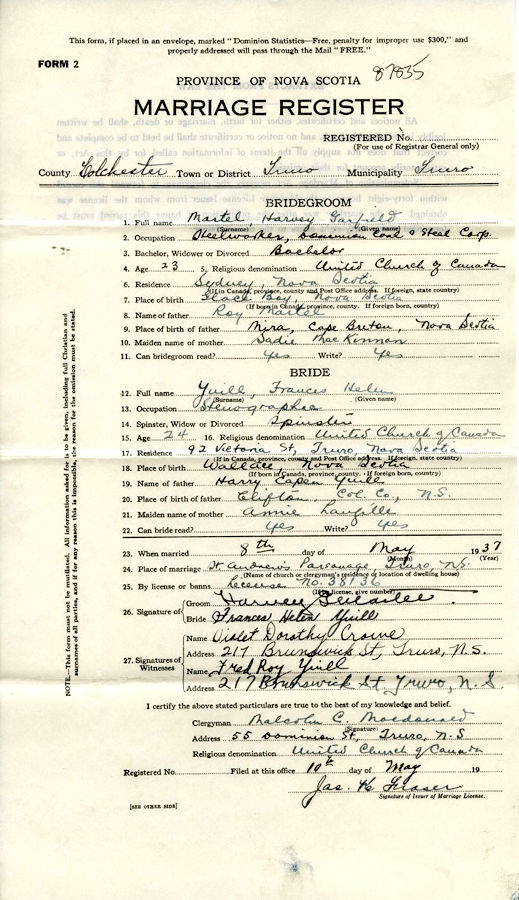 This form, if placed in an envelope, marked "Dominion Statistics—Free, penalty for improper use $300," and
properly addressed will pass through the Mail "FREE."
FORM 2
87835
PROVINCE OF NOVA SCOTIA
MARRIAGE REGISTER
REGISTERED No.
(For use of Registrar General only)
County Colchester Town or District Truro Municipality Truro
BRIDEGROOM
1. Full name Martel Harvey Garfield
(Surname) (Given name)
2. Occupation Steelworker, Dominion Coal & Steel Corp.
3. Bachelor, Widower or Divorced Bachelor
4. Age 23 5. Religious denomination United Church of Canada
6. Residence Sydney, Nova Scotia
(If in Canada, province, county and Post Office address. If foreign, state country)
7. Place of birth Glace Bay, Nova Scotia
(If born in Canada, province, county. If foreign born, country)
8. Name of father Roy Martel
9. Place of birth of father Mira, Cape Breton, Nova Scotia
10. Maiden name of mother Sadie MacKinnon
11. Can bridegroom read? Yes Write? Yes
BRIDE
12. Full name Yuill, Frances Helen
(Surname) (Given name)
13. Occupation Stenographer
14. Spinster, Widow or Divorced Spinster
15. Age 24 16. Religious denomination United Church of Canada
17. Residence 92 Victoria St, Truro, Nova Scotia
(If in Canada, province, county and Post Office address. If foreign, state country)
18. Place of birth Wallace, Nova Scotia
(If born in Canada, province, county. If foreign born, country)
19. Name of father Harry Capen Yuill
20. Place of birth of father Clifton, Col. Co., N.S.
21. Maiden name of mother Annie Langille
22. Can bride read? Yes Write? Yes
23. When married 8th day of May 1937
(Month) (Year)
24. Place of marriage St Andrew's Parsonage, Truro, N.S.
(Name of church or clergyman's residence or location of dwelling house)
25. By license or banns License No. 38136
(If by license, give number)
26. Signature of
Groom Harvey
Bride Frances Helen Yuill
27. Signatures of Witnesses
Name Violet Dorothy Crowe
Address 217 Brunswick St, Truro, N.S.
Name Fred Roy Yuill
Address 217 Brunswick St Truro, N.S.
I certify the above stated particulars are true to the best of my knowledge and belief.
Clergyman Malcolm C. Macdonald
(Signature)
Address 55 Dominion St, Truro, N.S
Religious denomination United Church of Canada
Registered No. Filed at this office 10th day of May 19
Jas. H. Fraser
Signature of Issuer of Marriage License.
[SEE OTHER SIDE]
NOTE.—This form must not be mutilated. All information asked for is to be given, including full Christian and
surnames of all parties, and if for any reason this is impossible, the reason for the omission must be stated.